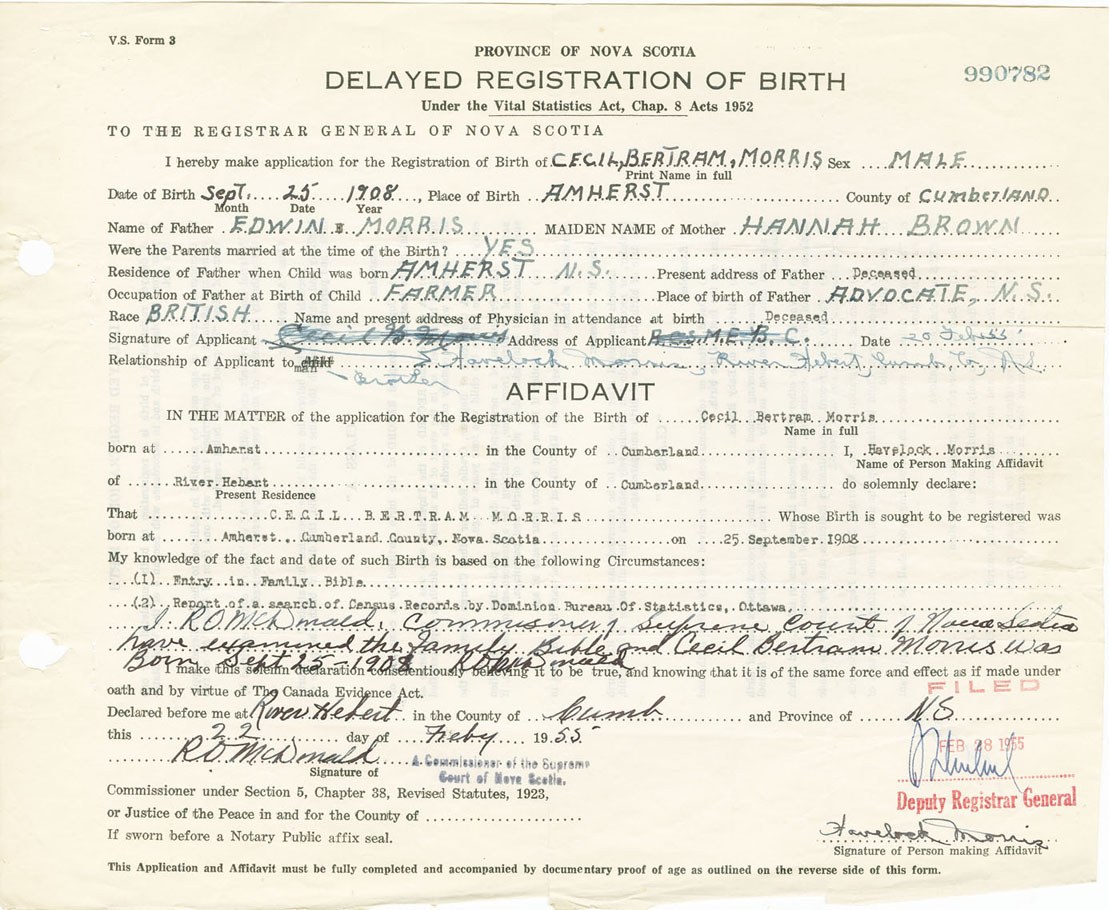 V.S. Form 3
PROVINCE OF NOVA SCOTIA
DELAYED REGISTRATION OF BIRTH
990782
Under the Vital Statistics Act, Chap. 8 Acts 1952
TO THE REGISTRAR GENERAL OF NOVA SCOTIA
I hereby make application for the Registration of Birth of CECIL, BERTRAM, MORRIS Sex MALE
Print Name in full
Date of Birth Sept. 25 1908, Place of Birth AMHERST County of CUMBERLAND
Month Date Year
Name of Father EDWIN MORRIS MAIDEN NAME of Mother HANNAH BROWN
Were the Parents married at the time of the Birth? YES
Residence of Father when Child was born AMHERST N.S. Present address of Father Deceased
Occupation of Father at Birth of Child FARMER Place of birth of Father ADVOCATE, N.S.
Race BRITISH Name and present address of Physician in attendance at birth Deceased
Signature of Applicant Cecil B. Morris Address of Applicant B.C. Date 20 Feb 55
Relationship of Applicant to child man Havelock Morris, River Hebert, Cumb. Co., N.S.
Brother
AFFIDAVIT
IN THE MATTER of the application for the Registration of the Birth of Cecil Bertram Morris
Name in full
born at Amherst in the County of Cumberland I, Havelock Morris
Name of Person Making Affidavit
of River Hebert in the County of Cumberland do solemnly declare:
Present Residence
That CECIL BERTRAM MORRIS Whose Birth is sought to be registered was
born at Amherst, Cumberland County, Nova Scotia on 25 September 1908
My knowledge of the fact and date of such Birth is based on the following Circumstances:
(1) Entry in Family Bible
(2) Report of a search of Census Records by Dominion Bureau Of Statistics, Ottawa,
I R O McDonald, Commisoner of Supreme Court of Nova Scotia
have examined the Family Bible and Cecil Bertram Morris was
Born Sept 25-1908 R O McDonald
I make this solemn declaration conscientiously believing it to be true, and knowing that it is of the same force and effect as if made under
oath and by virtue of The Canada Evidence Act.
FILED
Declared before me at River Hebert in the County of Cumb. and Province of N.S
this 22 day of Feby 1955
FEB 28 1955
R O McDonald
A Commissioner of the Supreme
Court of Nova Scotia.
Signature of
Deputy Registrar General
Commissioner under Section 5, Chapter 38, Revised Statutes, 1923,
or Justice of the Peace in and for the County of
Havelock Morris
If sworn before a Notary Public affix seal.
Signature of Person making Affidavit
This Application and Affidavit must be fully completed and accompanied by documentary proof of age as outlined on the reverse side of this form.